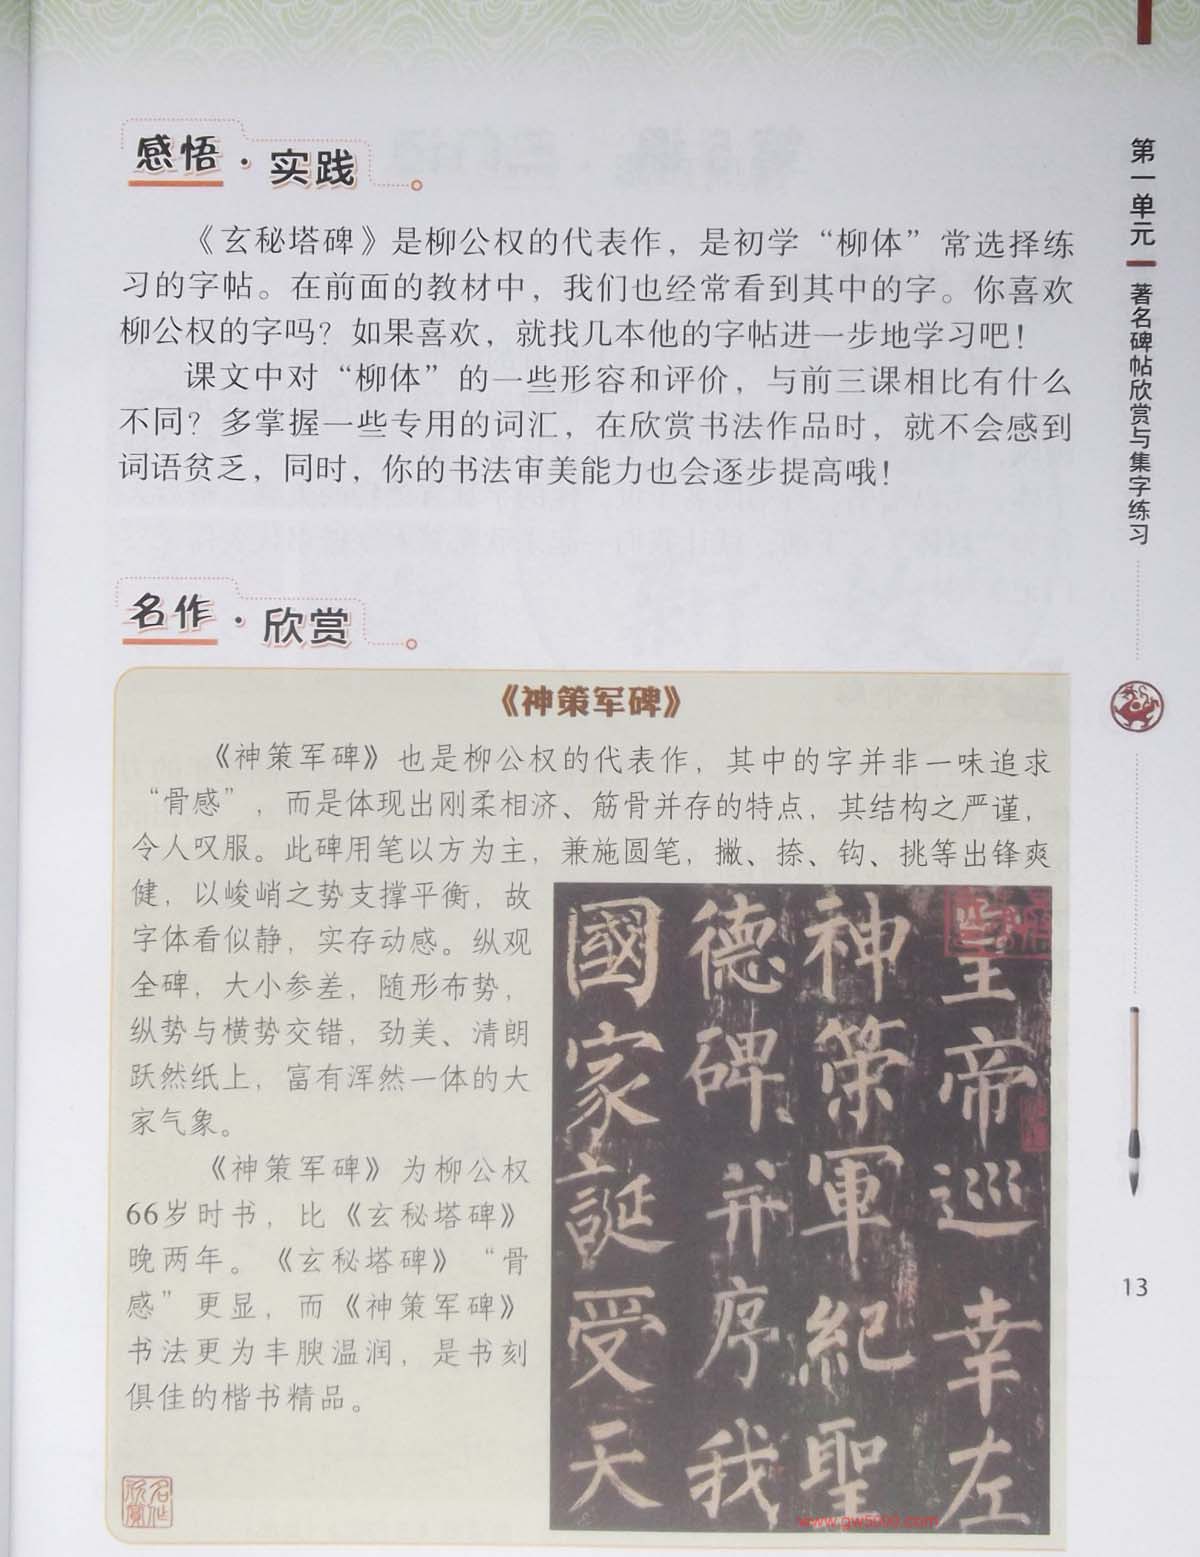 感悟·实践
《玄秘塔碑》是柳公权的代表作，是初学“柳体”常选择练
习的字帖。在前面的教材中，我们也经常看到其中的字。你喜欢
柳公权的字吗？如果喜欢，就找几本他的字帖进一步地学习吧！
课文中对“柳体”的一些形容和评价，与前三课相比有什么
不同？多掌握一些专用的词汇，在欣赏书法作品时，就不会感到
词语贫乏，同时，你的书法审美能力也会逐步提高哦！
名作·欣赏
《神策军碑》
《神策军碑》也是柳公权的代表作，其中的字并非一味追求
“骨感”，而是体现出刚柔相济、筋骨并存的特点，其结构之严谨，
令人叹服。此碑用笔以方为主，兼施圆笔，撇、捺、钩、挑等出锋爽
健，以峻峭之势支撑平衡，故
字体看似静，实存动感。纵观
全碑，大小参差，随形布势，
纵势与横势交错，劲美、清朗
跃然纸上，富有浑然一体的大
家气象。
《神策军碑》为柳公权
66岁时书，比《玄秘塔碑》
晚两年。《玄秘塔碑》“骨
感”更显，而《神策军碑》
书法更为丰腴温润，是书刻
俱佳的楷书精品。
皇帝巡幸左
神策軍紀聖
德碑并序我
國家誕受天
名作欣赏
www.gw5000.com
第一单元
著名碑帖欣赏与集字练习
13